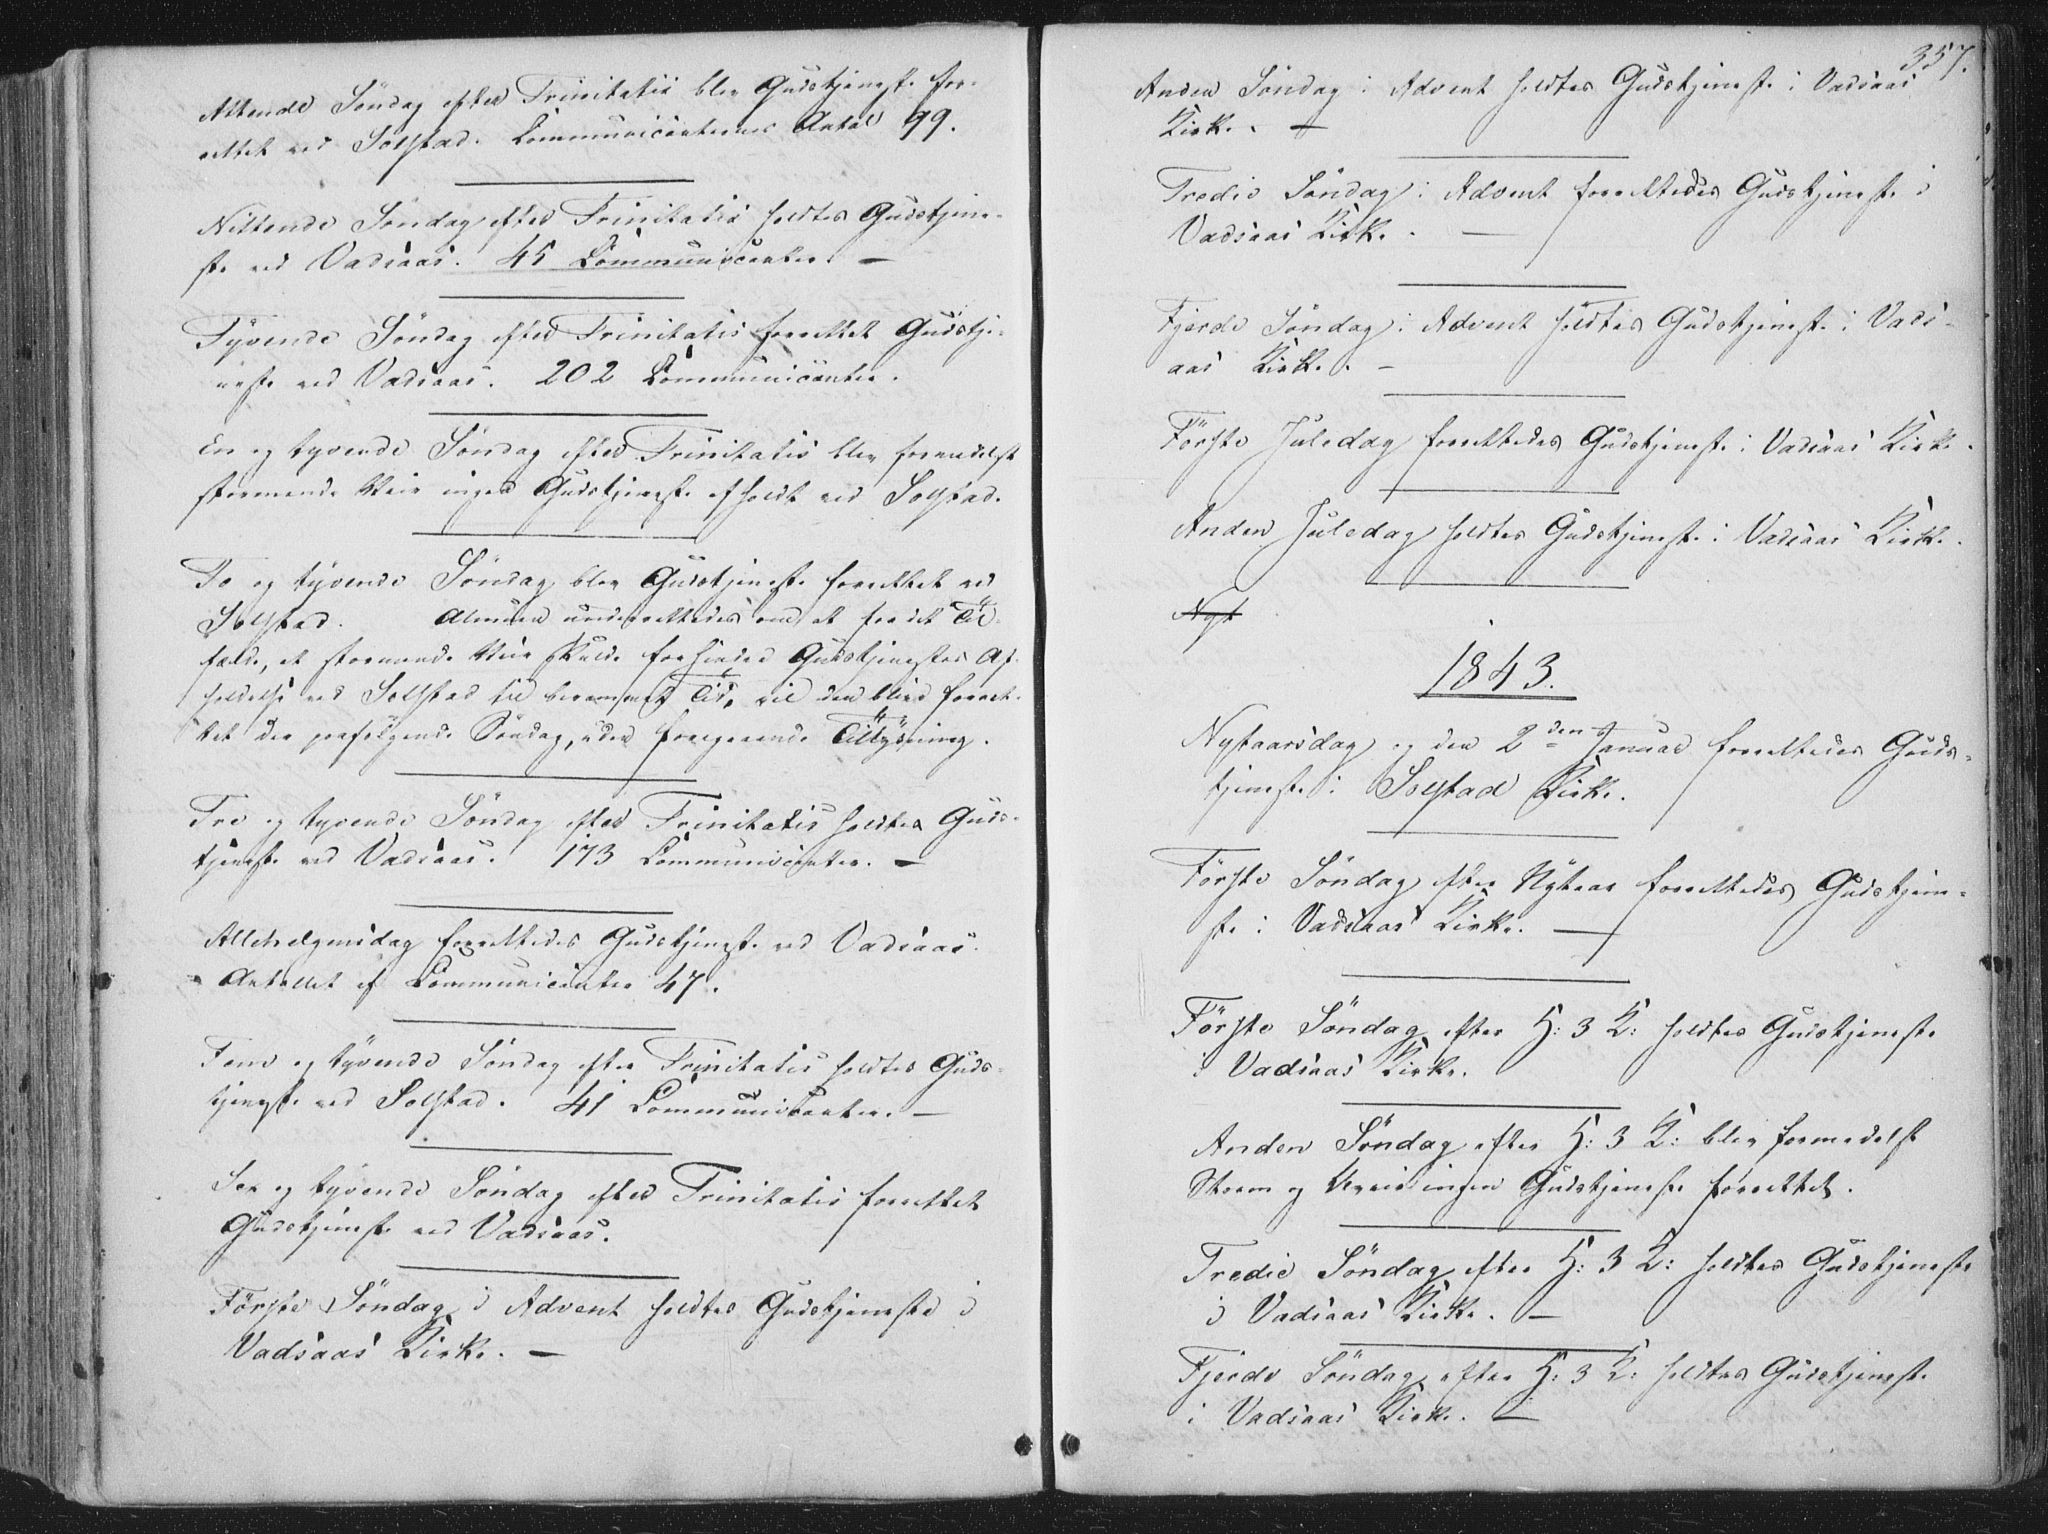 Attende Söndag efter Trinitatis blev Gudstjeneste for-
rettet ved Solstad. Communicanternes Antal 99.
Nittende Söndag efter Trinitatis holdtes Gudstjene-
ste ved Vadsaas. 45 Communicanter. —
Tyvende Söndag efter Trinitatis forrettet Gudstje-
neste ved Vadsaas. 202 Communicanter.
En og tyvende Söndag efter Trinitatis blev formedelst
stormende Veir ingen Gudstjeneste afholdt ved Solstad.
To og tyvende Söndag blev Gudstjeneste forrettet ved
Solstad. Almuen underrettedes om at for det Til-
fælde, at stormende Veir skulde forhindre Gudstjenestes Af-
holdelse ved Solstad til berammet Tid, vil den blive forret-
tet den paafølgende Söndag, uden foregaaende Tillysning.
Tre og tyvende Söndag efter Trinitatis holdtes Guds-
tjeneste ved Vadsaas. 173 Communicanter. —
Allehelgensdag forrettedes Gudstjeneste ved Vadsaas.
Antallet af Communicanter 47.
Fem og tyvende Söndag efter Trinitatis holdtes Guds-
tjeneste ved Solstad. 41 Communicanter. —
Sex og tyvende Söndag efter Trinitatis forrettet
Gudstjeneste ved Vadsaas.
Förste Söndag i Advent holdtes Gudstjeneste i
Vadsaas Kirke. —
357.
Anden Söndag i Advent holdtes Gudstjeneste i Vadsaas
Kirke. —
Tredie Söndag i Advent forrettedes Gudstjeneste i
Vadsaas Kirke. —
Fjerde Söndag i Advent holdtes Gudstjeneste i Vads-
aas Kirke. —
Förste Juledag forrettedes Gudstjeneste i Vadsaas Kirke.
Anden Juledag holdtes Gudstjeneste i Vadsaas Kirke.
Nyt
1843.
Nytaarsdag og den 2den Januar forrettedes Guds-
tjeneste i Solstad Kirke.
Förste Söndag efter Nytaar forrettedes Gudstjene-
ste i Vadsaas Kirke. —
Förste Söndag efter H: 3 K: holdtes Gudstjeneste
i Vadsaas Kirke.
Anden Söndag efter H: 3 K: blev formedelst
Storm og Uveir ingen Gudstjeneste forrettet.
Tredie Söndag efter H: 3 K: holdtes Gudstjeneste
i Vadsaas Kirke. —
Fjerde Söndag efter H: 3 K: holdtes Gudstjeneste
i Vadsaas Kirke. —